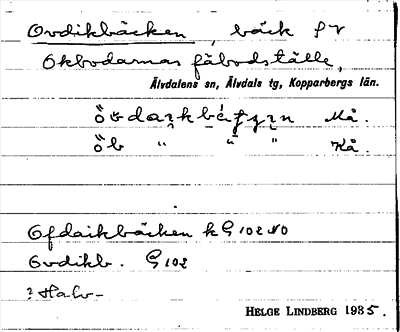 Ovdikbäcken, bäck på
Okbodarnas fäbodställe,
Älvdalens sn, Älvdals tg, Kopparbergs län.
Må.
Kå.
Ofdaikbäcken k G 102 NO
Ovdikb. G 102
? Halv-
HELGE LINDBERG 1935.